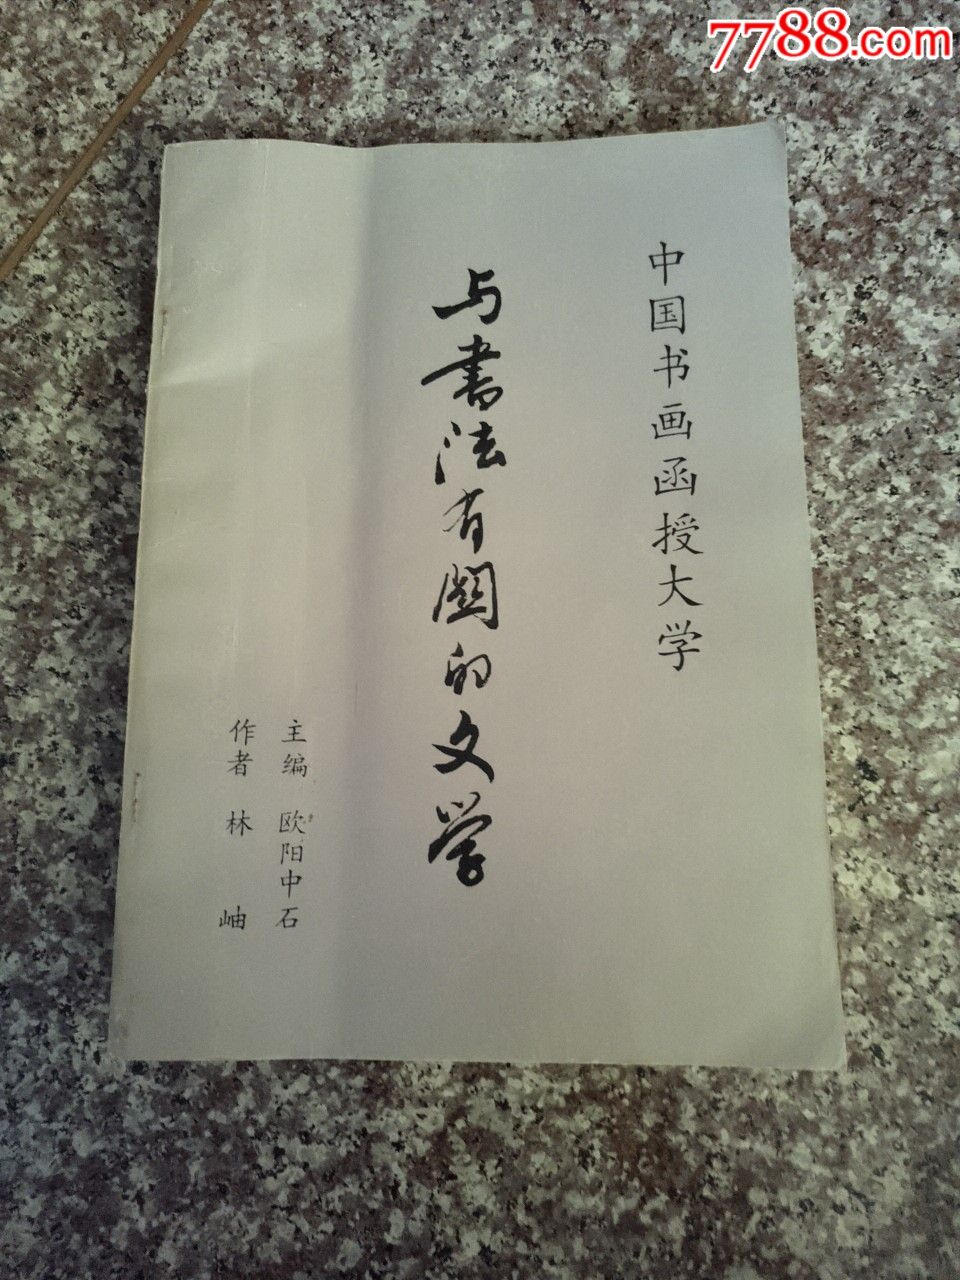 7788.com
中国书画函授大学
与書法有関的文学
主编 欧阳中石
作者 林岫